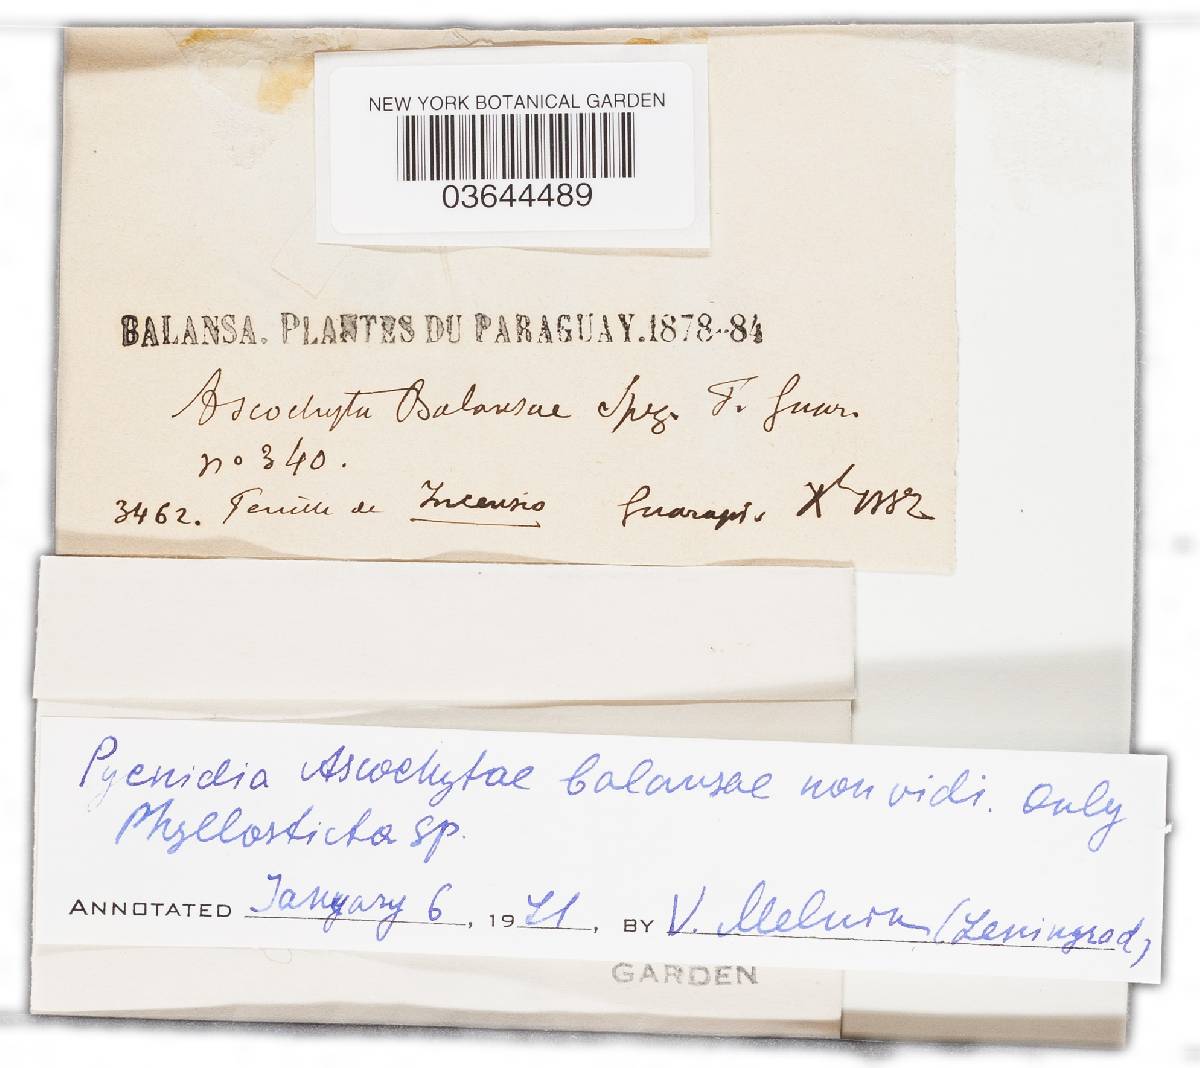 NEW YORK BOTANICAL GARDEN
03644489
BALANSA. PLANTES DU PARAGUAY. 1878-84
Ascochyta Balansae Speg. F. Guar.
no 340.
3462. Feuille de Incensio Guarapi. Xb 1882
Pycnidia Ascochytae balansae non vidi. Only
Phyllosticta sp.
ANNOTATED January 6, 1971, BY V. Melnik (Leningrad)
GARDEN